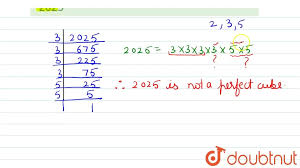 2025
2, 3, 5
3 | 2025
3 | 675
3 | 225
3 | 75
5 | 25
5 | 5
1 | 1
2025 = 3×3×3×3×5×5
? ?
∴ 2025 is not a perfect cube
doubtnut